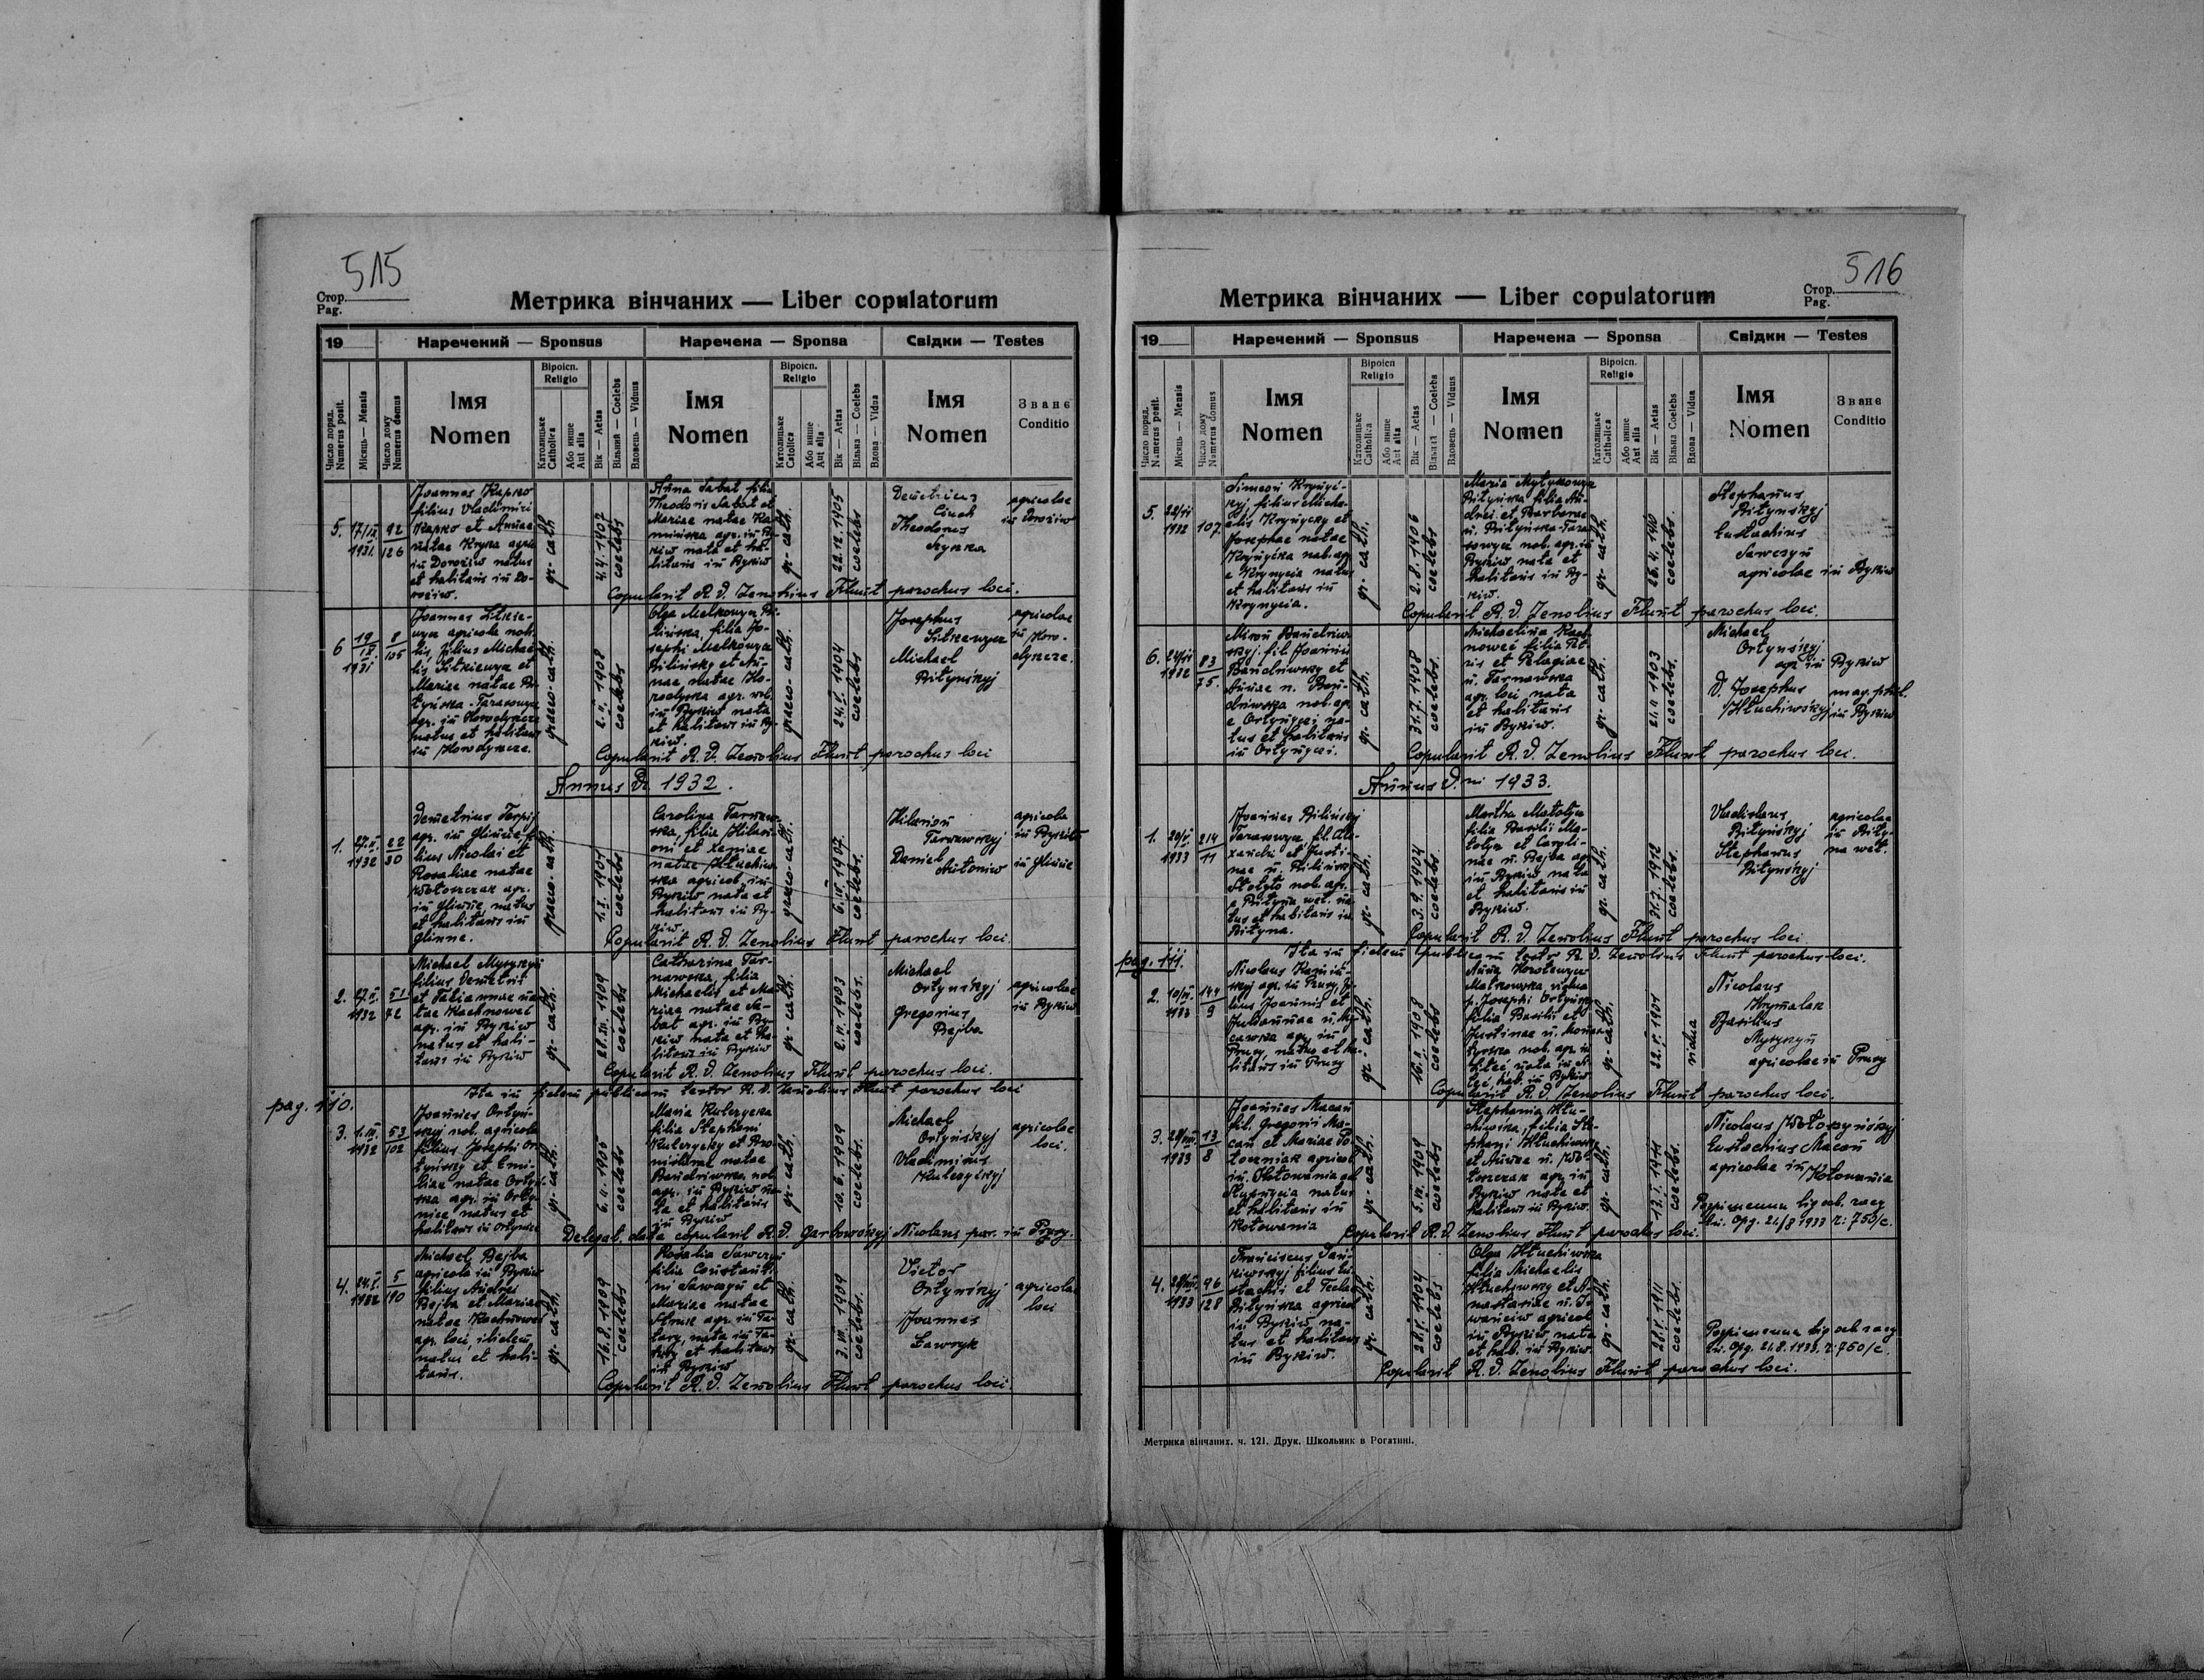 515
Стор.
Pag.
Метрика вінчаних — Liber copulatorum
19
Наречений — Sponsus
Наречена — Sponsa
Свідки — Testes
Число поряд.
Numerus posit.
Місяць — Mensis
Число дому
Numerus domus
Імя
Nomen
Віроісп.
Religio
Католицьке
Catholica
Або инше
Aut alia
Вік — Aetas
Вільний — Coelebs
Вдовець — Viduus
Імя
Nomen
Віроісп.
Religio
Католицьке
Catolica
Або инше
Aut alia
Вік — Aetas
Вільна — Coelebs
Вдова — Vidua
Імя
Nomen
Званє
Conditio
5.
1931.
92
126
Joannes Kapko
filius Vladimiri
Kapko et Annae
natae Kryka
in Dorożiw natus
et habitans in Do-
rożiw.
gr- cath.
4.4.1907
coelebs
Anna Sabat filia
Theodoris Sabat et
Mariae natae Ka-
mińska agr. in By-
kiw nata et ha-
bitans in Bykiw
gr- cath.
22.12.1905
coelebs
Demetrius
Theodorus
agricolae
in Dorożiw
Copulavit R. D. Zenobius Flunt parochus loci.
6
19
IX
1931
8
105
Joannes Litkie-
wycz agricola nob-
lis, filius Michae-
lis Litkiewycz et
Mariae natae Bi-
tyńska-Tarasowycz
agr. in Horodyszcze
natus et habitans
in Horodyszcze.
graeco-cath.
1908
coelebs
Olga Melkowycz Bi-
lińska, filia Jo-
sephi Melkowycz
Bilinsky et An-
nae natae Ho-
rodyska agr. nob.
in Bykiw nata
et habitans in By-
kiw.
graeco-cath.
1904
coelebs
Josephus
Litkewycz
Michael
Bityńskyj
agricolae
in Horo-
dyszcze.
Copulavit R. D. Zenobius Flunt parochus loci
Annus D. 1932.
1.
1932
22
30
Demetrius
agr. in Glinne fi-
lius Nicolai et
Rosaliae natae
Wołoszczak agr.
in Glinne, natus
et habitans in
Glinne.
graeco-cath.
coelebs
Carolina Tarnaw-
ska, filia Hilari-
oni et Xeniae
natae Hłuchiw-
ska agricol. in
Bykiw nata et
habitans in By-
kiw.
graeco-cath.
1907.
coelebs.
Hilarion
Tarnawskyj
Daniel
Antoniw
agricola
in Bykiw
in Glinne
Copulavit R. D. Zenobius Flunt parochus loci.
2.
1932
51
72
Michael
filius Demetrii
et Tatiannae na-
tae Kachnowec
agr. in Bykiw
natus et habi-
tans in Bykiw
gr- cath.
1909
coelebs
Catharina Tar-
nawska, filia
Michaelis et Ma-
riae natae Sa-
bat agr. in By-
kiw nata et ha-
bitans in Bykiw
gr- cath.
1903
coelebs.
Michael
Ortynśkyj
Gregorius
Bejba
agricolae
in Bykiw
Copulavit R. D. Zenobius Flunt parochus loci.
Ita in fidem publicam testor R. D. Zenobius Flunt parochus loci
pag. 110.
3.
1932
53
102
Joannes Ortyn-
skyj nob. agricola
filius Josephi Or-
tynsky et Emi-
liae natae Ortyn-
ska agr. in Orty-
nice natus et
habitans in Ortynice
gr- cath.
coelebs
Maria Kulczycka
filia Stephani
Kulczycky et Bro-
nislavae natae
Bandriwska nob.
agr. in Bykiw na-
ta et habitans
in Bykiw
gr- cath.
10.6.1909
coelebs.
Michael
Ortynśkyj
Vladimirus
Kulczyckyj
agricolae
loci.
Delegat. data copulavit R. D. Garbowśkyj Nicolaus par. in Prusy.
4.
1932
5
110
Michael Bejba
agricola in Bykiw
filius Andrei
Bejba et Mariae
natae Kachnowec
agr. loci, ibidem
natus et habi-
tans.
gr- cath.
16.8.1909
coelebs
Rosalia Sawczyn
filia Constanti-
ni Sawczyn et
Mariae natae
agr. in Ta-
tary, nata in Ta-
tary et habitans
in Bykiw
gr- cath.
1909
coelebs.
Victor
Ortynśkyj
Joannes
Ławryk
agricolae
loci
Copulavit R. D. Zenobius Flunt parochus loci.
516
Стор.
Pag.
Метрика вінчаних — Liber copulatorum
19
Наречений — Sponsus
Наречена — Sponsa
Свідки — Testes
Число поряд.
Numerus posit.
Місяць — Mensis
Число дому
Numerus domus
Імя
Nomen
Віроісп
Religio
Католицьке
Catholica
Або инше
Aut alia
Вік — Aetas
Вільний — Coelebs
Вдовець — Viduus
Імя
Nomen
Віроісп.
Religio
Католицьке
Catholica
Або инше
Aut alia
Вік — Aetas
Вільна Coelebs
Вдова — Vidua
Імя
Nomen
Званє
Conditio
5.
1932
107.
Simeon Krynyc-
kyj filius Micha-
elis Krynycky et
Josephae natae
Krynycka nob. agr.
e Krynycia natus
et habitans in
Krynycia.
gr- cath.
2.8.1906
coelebs
Maria
Bityńska filia An-
drei et Barbarae
n. Bityńska-Tara-
sowycz nob. agr. in
Bykiw nata et
habitans in By-
kiw.
gr- cath.
26.4.1910
coelebs.
Stephanus
Bitynśkyj
Eustachius
Sawczyn
agricolae in Bykiw
Copulavit R. D. Zenobius Flunt parochus loci.
6.
1932
83
75.
Miron Bandriw-
skyj fil. Joannis
Bandriwsky et
Annae n. Ban-
driwska nob. agr.
e Ortynyci na-
tus et habitans
in Ortynyci.
gr- cath.
31.7.1908
coelebs.
Michaelina Kach-
nowec filia Pet-
ris et Pelagiae
n. Tarnawska
agr. loci nata
et habitans
in Bykiw.
gr- cath.
1903
coelebs.
Michael
Ortynśkyj
agr in Bykiw
D. Josephus mag. phil.
Hłuchiwśkyj in Bykiw
Copulavit R. D. Zenobius Flunt parochus loci.
Annus D.ni 1933.
1.
1933
214
11
Joannes Bilinśkyj
Tarasowycz fil. Ale-
xandri et Justi-
nae n. Bilinska
nob. agr.
e Bityna wel. na-
tus et habitans in
Bityna.
gr- cath.
3.9.1904
coelebs
Martha Matołycz
filia Basilii Ma-
tołycz et Caroli-
nae n. Bejba agr.
in Bykiw nata
et habitans in
Bykiw.
gr- cath.
31.7.1912
coelebs.
Vladislaus
Bitynśkyj
Stephanus
Bitynśkyj
agricolae
in Bity-
na wel.
Copulavit R. D. Zenobius Flunt parochus loci.
Ita in fidem publicam testor R. D. Zenobius Flunt parochus loci.
pag. 111.
2.
1933
149
9
Nicolaus
agr. in Prusy, fi-
lius Joannis et
Juliannae n.
agr. in
Prusy, natus et ha-
bitans in Prusy
gr- cath.
1908
coelebs
Anna
vidua
p. Josephi Ortynsky
filia Basilii et
Justinae n.
nob. agr. in
nata in
hab. in Bykiw
gr- cath.
vidua
Nicolaus
Krymalak
Basilius
agricolae in Prusy
Copulavit R. D. Zenobius Flunt parochus loci.
3.
1933
13
8
Joannes Macan
fil. Gregorii Ma-
can et Mariae Po-
toczniak agricol
in Hołowania ad
natus
et habitans in
Hołowania
gr- cath.
1909
coelebs
Stephania Hłu-
chiwska, filia Ste-
phani Hłuchiwsky
et Annae n. Woło-
szczak agr. in
Bykiw nata et
habitans in Bykiw.
gr- cath.
1911
coelebs.
Nicolaus Wołoszynśkyj
Eustachius Macan
agricolae in Hołowania
21/8 1933 ч: 750/с.
Copulavit R. D. Zenobius Flunt parochus loci.
4.
1933
96
128
Franciscus
filius Eu-
stachii et Teclae
Bityńska agricol
in Bykiw na-
tus et habitans
in Bykiw.
gr- cath.
1904
coelebs
Olga Hłuchiwska
filia Michaelis
Hłuchiwsky et A-
nastasiae n. I-
waneciw agricol
in Bykiw nata
et hab. in Bykiw.
gr- cath.
1911
coelebs.
21.8.1933. ч: 750/с.
Copulavit R. D. Zenobius Flunt parochus loci.
Метрика вінчаних. ч. 121. Друк. Школьник в Рогатині.